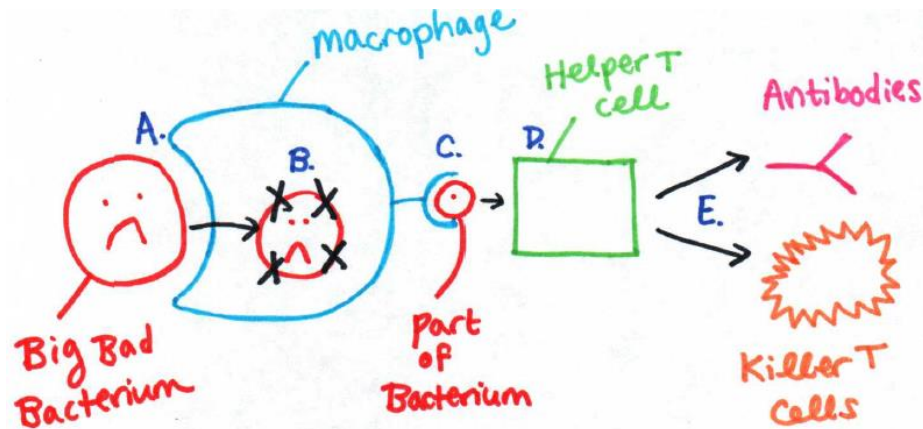 macrophage
Helper T
cell
Antibodies
A.
B.
C.
D.
E.
Big Bad
Bacterium
part
of
Bacterium
Killer T
cells